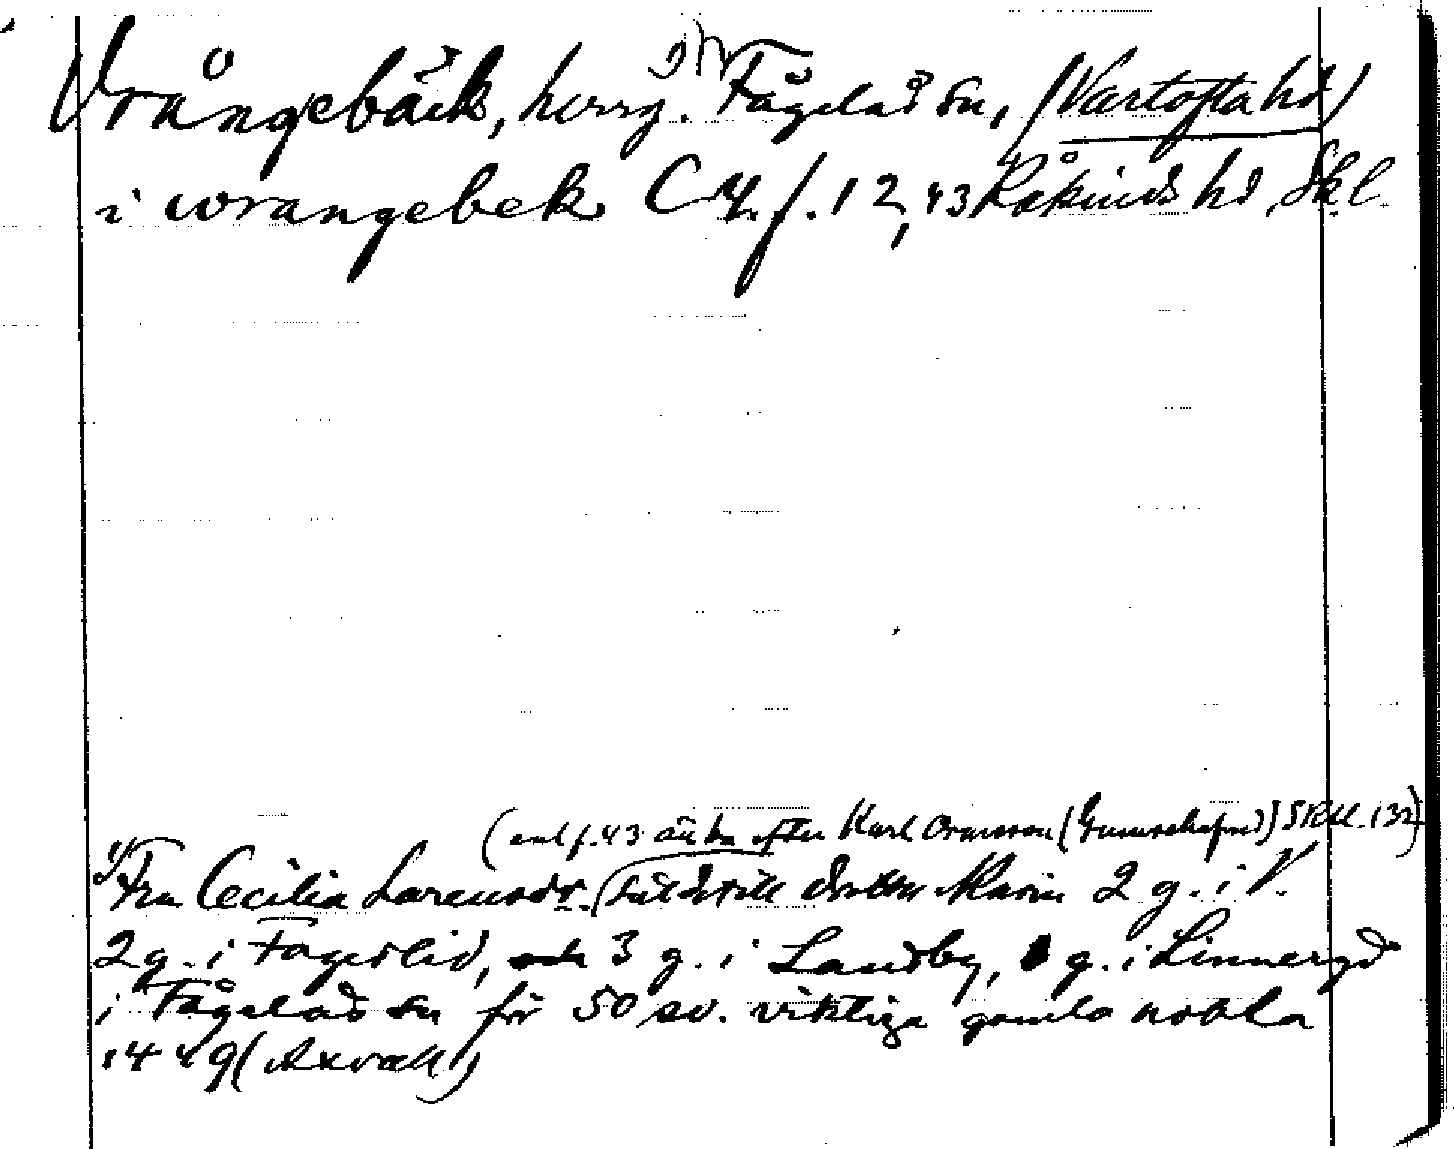 Vrångebäck, herrg. Fågelås sn, (Vartofta hd)
i wrangebek C 4. f. 12, 43 Råkinds hd, Skl.
(enl f. 43 änka efter Karl Ormsson (Gumsehufvud) SRM. 132)
1) Fru Cecilia Larensdr. sålde till drotten Marin 2 g. i V.
2 g. i Fagerlid, 3 g. i Landby, g. i Linnergd
i Fågelås sn för 50 sv. viktiga gamla nobla
1449 (Axvall)